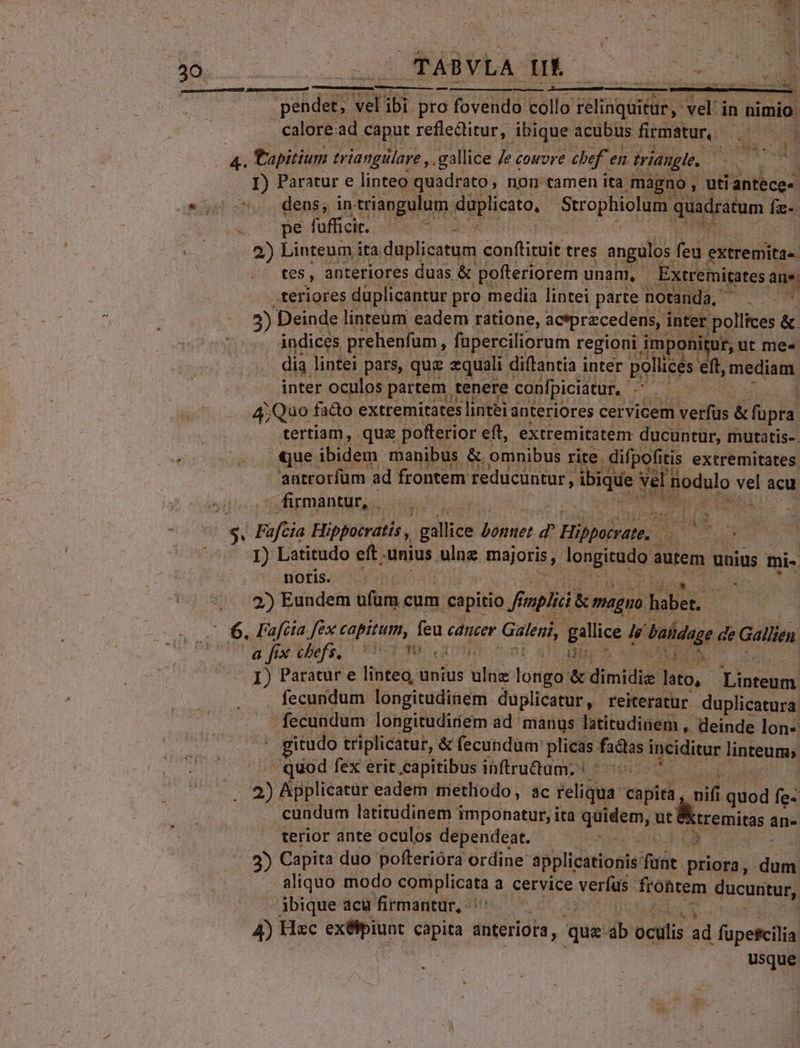 30 TABVLA III.
pendet, vel ibi pro fovendo collo relinquitur, vel in nimio
calore ad caput reflectitur, ibique acubus firmatur.
4. Capitium triangulare, gallice le couvre chef en triangle.
1) Paratur e linteo quadrato, non tamen ita magno, uti antece-
dens, in triangulum duplicato, Strophiolum quadratum ſæ-
pe ſufficit.
2) Linteum ita duplicatum conſtituit tres angulos ſeu extremita-
tes, anteriores duas & poſteriorem unam. Extremitates an-
teriores duplicantur pro media lintei parte notanda.
3) Deinde linteum eadem ratione, ac præcedens, inter pollices &
indices prehenſum, ſuperciliorum regioni imponitur, ut me-
dia lintei pars, quæ æquali diſtantia inter pollices eſt, mediam
inter oculos partem tenere conſpiciatur.
4) Quo facto extremitates lintei anteriores cervicem verſus & ſupra
tertiam, quæ poſterior eſt, extremitatem ducuntur, mutatis-
que ibidem manibus & omnibus rite diſpoſitis extremitates
antrorſum ad frontem reducuntur, ibique vel nodulo vel acu
firmantur.
5. Faſcia Hippocratis, gallice bonnet d' Hippocrate.
1) Latitudo eſt unius ulnæ majoris, longitudo autem unius mi-
noris.
2) Eundem uſum cum capitio ſimplici & magno habet.
6. Faſcia ſex capitum, ſeu cancer Galeni, gallice le bandage de Gallien
a ſix chefs.
1) Paratur e linteo, unius ulnæ longo & dimidiæ lato, Linteum
ſecundum longitudinem duplicatur, reiteratur duplicatura
ſecundum longitudinem ad manus latitudinem, deinde lon-
gitudo triplicatur, & ſecundum plicas factas inciditur linteum,
quod ſex erit capitibus inſtructum.
2) Applicatur eadem methodo, ac reliqua capita, niſi quod ſe-
cundum latitudinem imponatur, ita quidem, ut extremitas an-
terior ante oculos dependeat.
3) Capita duo poſteriora ordine applicationis ſunt priora, dum
aliquo modo complicata a cervice verſus frontem ducuntur,
ibique acu firmantur.
4) Hæc excipiunt capita anteriora, quæ ab oculis ad ſupercilia
usque